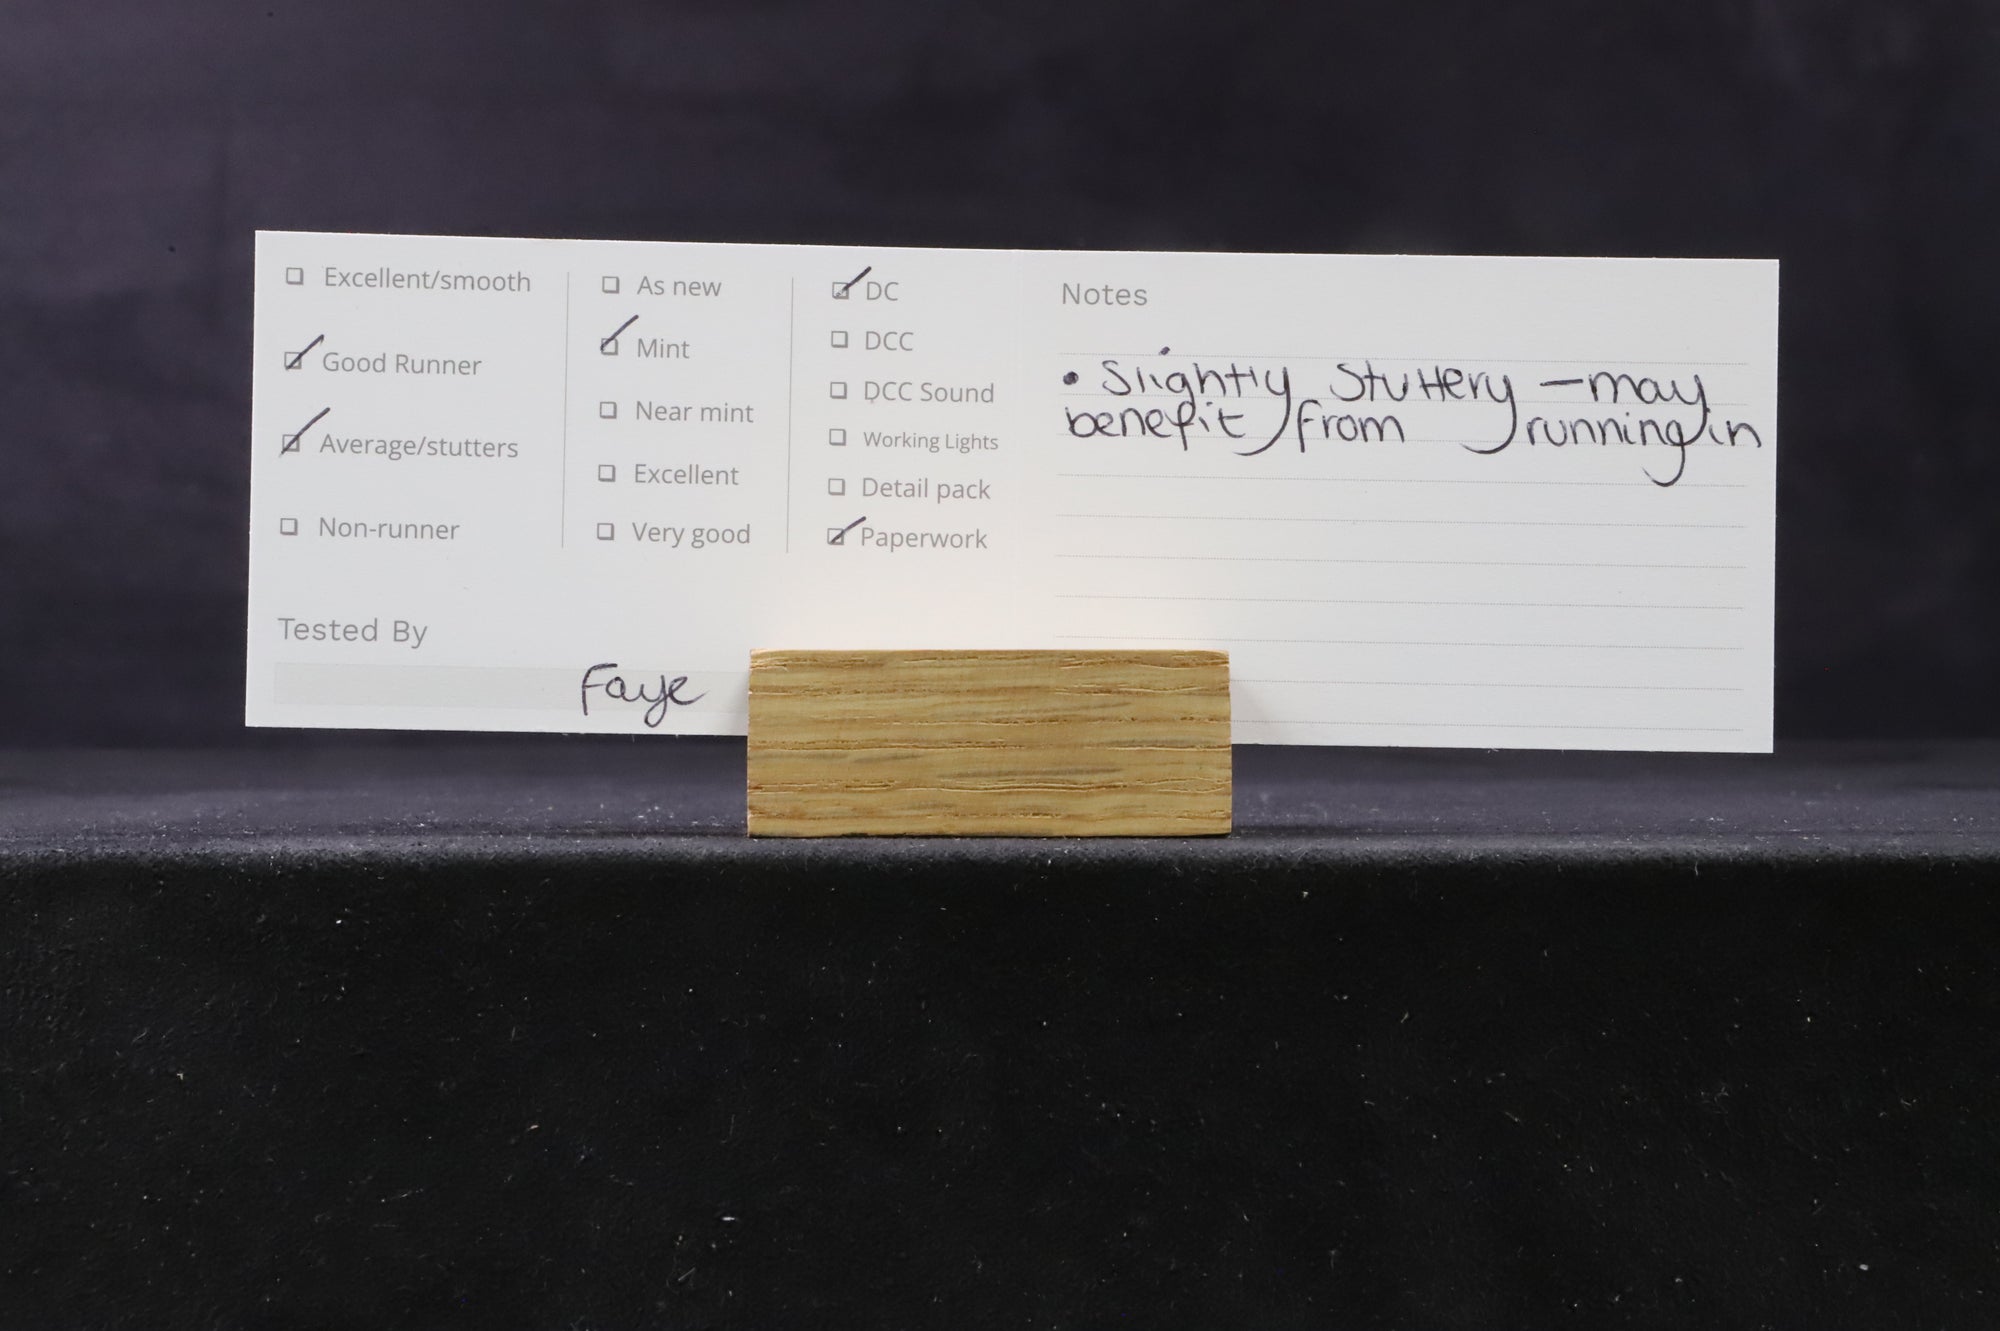 Excellent/smooth
Good Runner
Average/stutters
Non-runner
As new
Mint
Near mint
Excellent
Very good
DC
DCC
DCC Sound
Working Lights
Detail pack
Paperwork
Tested By
Faye
Notes
• Slightly stuttery – may
benefit from running in